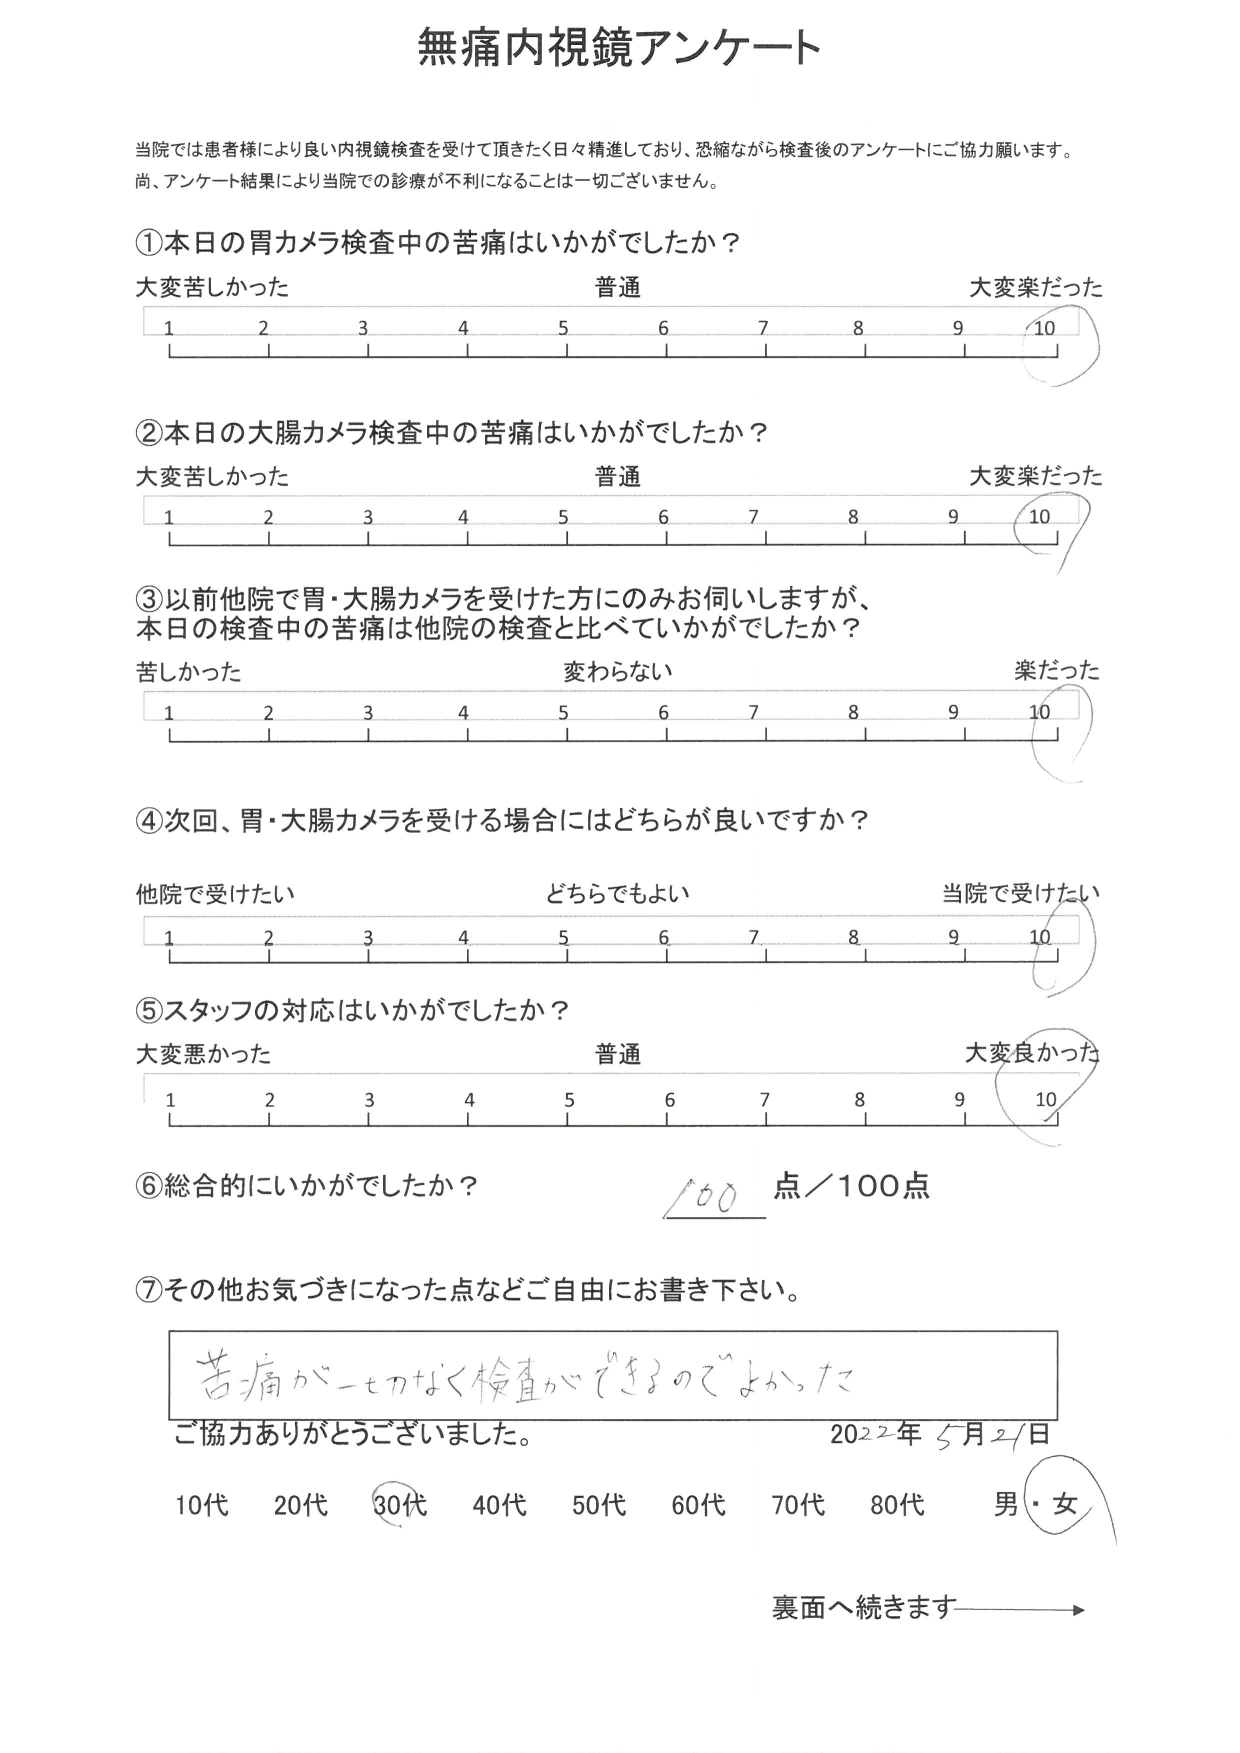 無痛内視鏡アンケート
当院では患者様により良い内視鏡検査を受けて頂きたく日々精進しており、恐縮ながら検査後のアンケートにご協力願います。
尚、アンケート結果により当院での診療が不利になることは一切ございません。
①本日の胃カメラ検査中の苦痛はいかがでしたか？
大変苦しかった 普通 大変楽だった
1 2 3 4 5 6 7 8 9 10
②本日の大腸カメラ検査中の苦痛はいかがでしたか？
大変苦しかった 普通 大変楽だった
1 2 3 4 5 6 7 8 9 10
③以前他院で胃・大腸カメラを受けた方にのみお伺いしますが、
本日の検査中の苦痛は他院の検査と比べていかがでしたか？
苦しかった 変わらない 楽だった
1 2 3 4 5 6 7 8 9 10
④次回、胃・大腸カメラを受ける場合にはどちらが良いですか？
他院で受けたい どちらでもよい 当院で受けたい
1 2 3 4 5 6 7 8 9 10
⑤スタッフの対応はいかがでしたか？
大変悪かった 普通 大変良かった
1 2 3 4 5 6 7 8 9 10
⑥総合的にいかがでしたか？ 100 点／100点
⑦その他お気づきになった点などご自由にお書き下さい。
苦痛が一切なく検査ができるのでよかった
ご協力ありがとうございました。 2022年 5月21日
10代 20代 30代 40代 50代 60代 70代 80代 男・女
裏面へ続きます